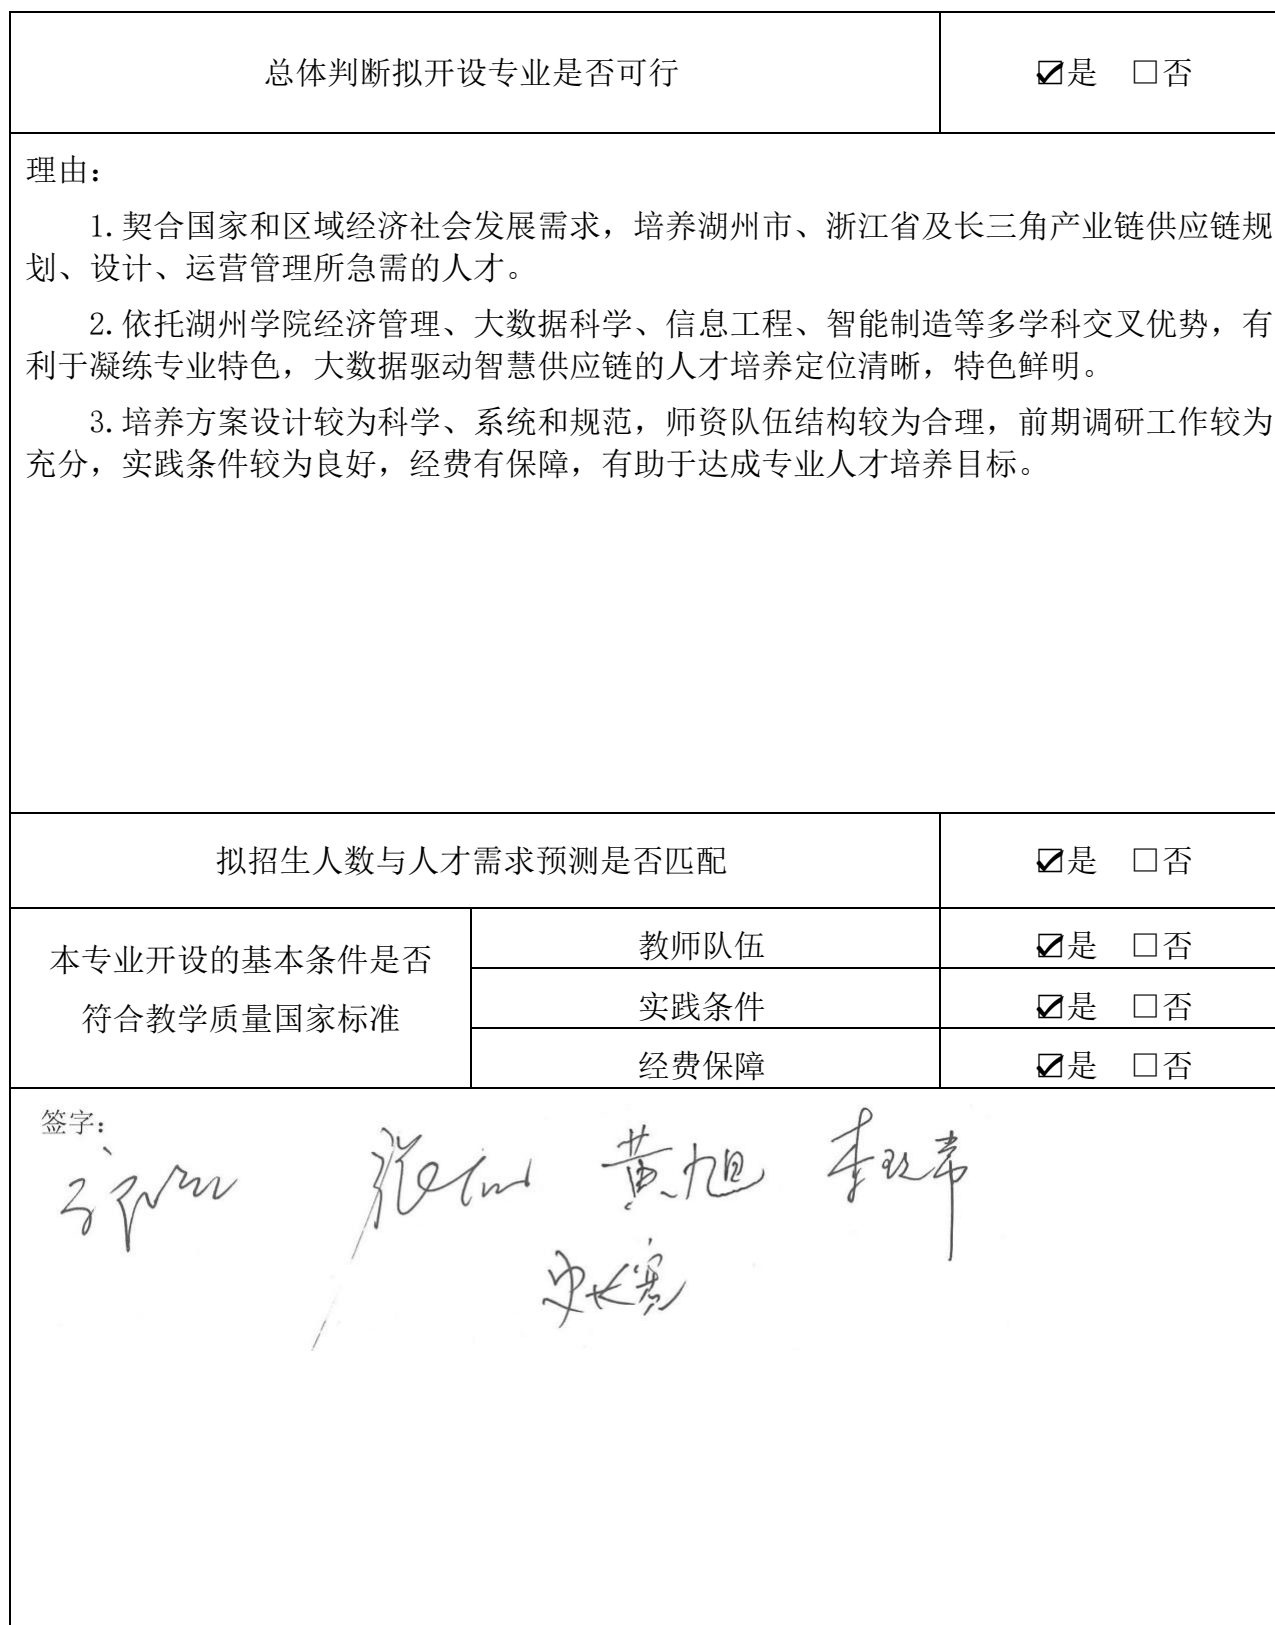 总体判断拟开设专业是否可行 ☑是 □否
理由：
1.契合国家和区域经济社会发展需求，培养湖州市、浙江省及长三角产业链供应链规
划、设计、运营管理所急需的人才。
2.依托湖州学院经济管理、大数据科学、信息工程、智能制造等多学科交叉优势，有
利于凝练专业特色，大数据驱动智慧供应链的人才培养定位清晰，特色鲜明。
3.培养方案设计较为科学、系统和规范，师资队伍结构较为合理，前期调研工作较为
充分，实践条件较为良好，经费有保障，有助于达成专业人才培养目标。
拟招生人数与人才需求预测是否匹配 ☑是 □否
本专业开设的基本条件是否
符合教学质量国家标准
教师队伍 ☑是 □否
实践条件 ☑是 □否
经费保障 ☑是 □否
签字：
黄旭